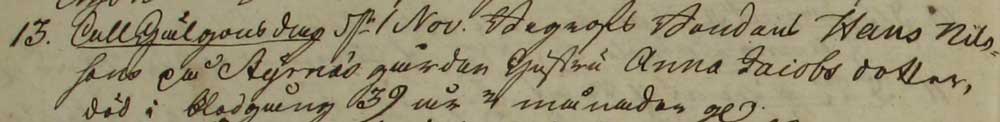 13. Allhelgonadag d. 1 Nov. Begrofs Bondens Hans Nils-
sons på gården Hustru Anna Jacobs dotter,
död i blodgång 39 år 2 månader g.